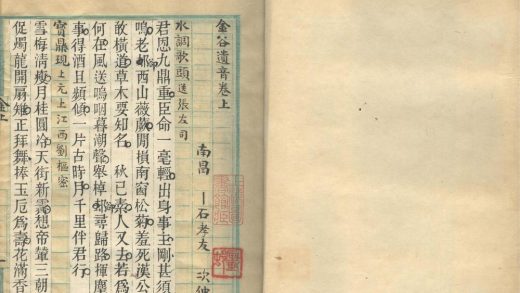 金谷遺音卷上
南昌 石孝友 次仲
水調歌頭 送張左司
君恩九鼎重臣命一毫輕出身事主剛甚須
嗚老郤西山薇蕨閒損南窗松菊羞死漢公
敢橫道草木要知名 秋已素人又去若爲
何在風送嗚咽暮潮聲舉棹郤尋歸路揮麈
事得酒且頻傾一片古時月千里伴君行
寶鼎現 上元上江西劉樞密
雪梅清瘦月桂圓冷天街新霽想帝輦三朝
促燭龍開扇雉正拜舞捧玉巵爲壽花滿香